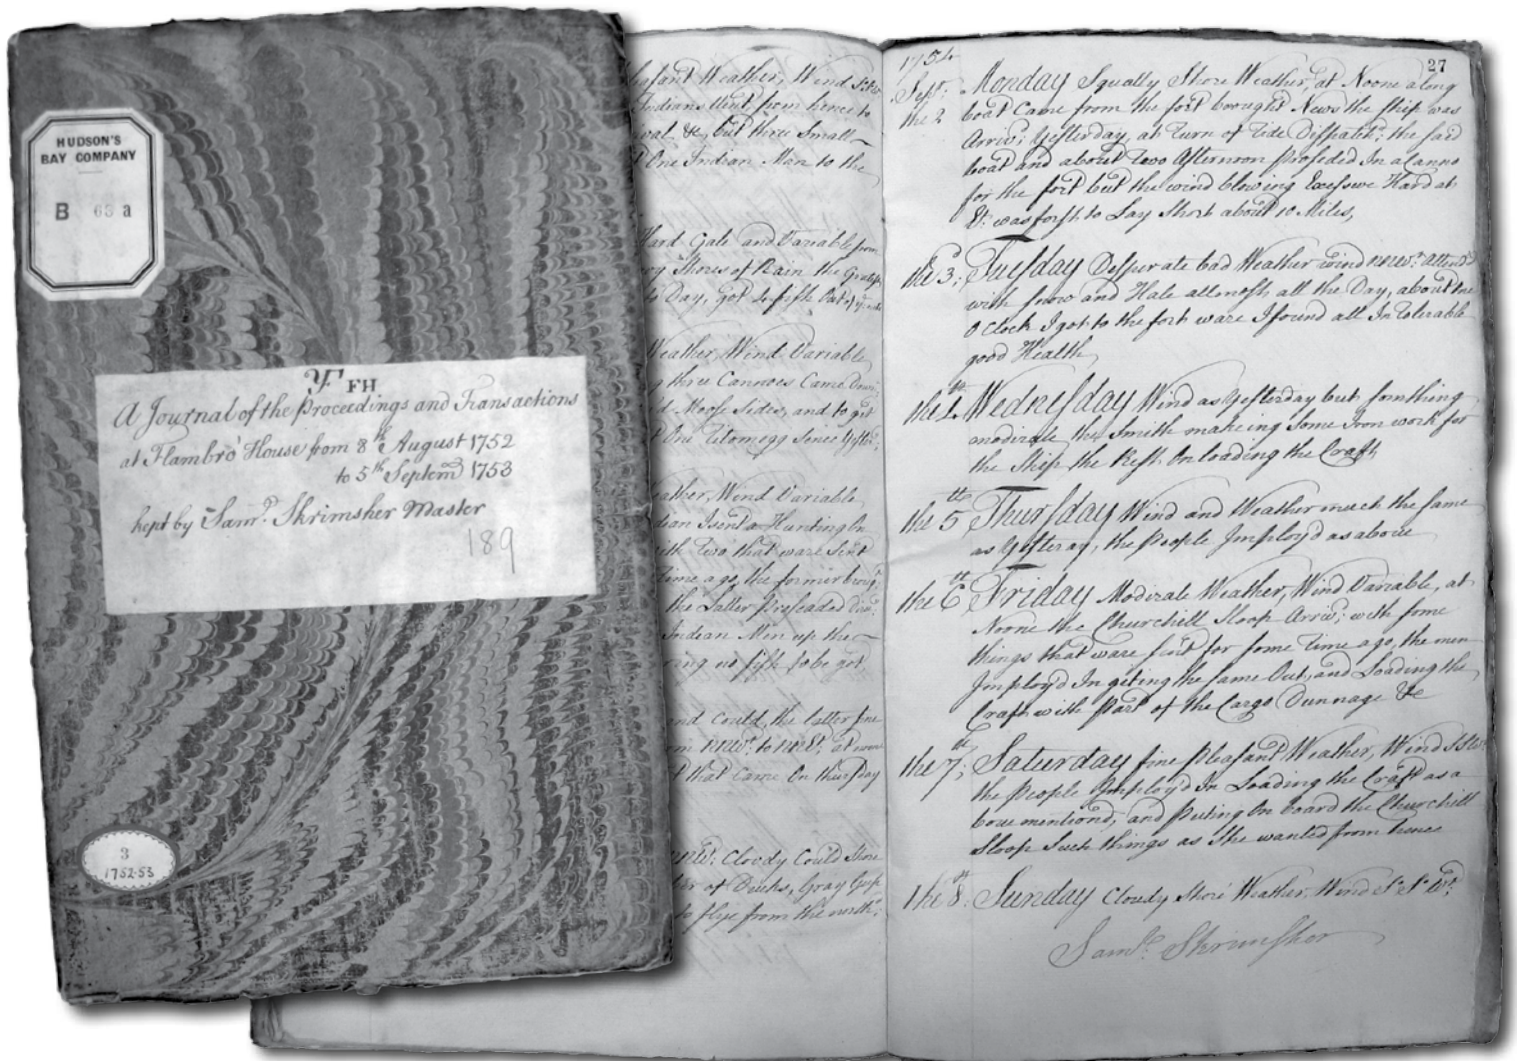 HUDSON'S
BAY COMPANY
B 63 a
YF FH
A Journal of the Proceedings and Transactions
at Flambro' House from 8th August 1752
to 5th Septem 1753
kept by Sam.l Skrimsher Master
189
3
1752-53
Weather, Wind
Indians Went from hence to
&c, but three Small
One Indian Man to the
Hard Gale and Variable from
Shores of Rain the
Day, got
Weather, Wind Variable
three Cannoes Came Down
Moose Sides, and to git
One Titomegg Sence
Weather, Wind Variable
I sent a Hunting
with Two that ware Sent
time ago, the former
the Latter
Indian Men up the
no fish to be got
and Could, the latter fine
to at
that Came On thursday
Cloudy Could Shore
of Ducks, Gray Geese
to flye from the north
27
1754
Sept.r Monday Squally Shore Weather, at Noone a long
the 2 boat Came from the fort brought News the Ship was
Arriv'd Yesterday, at Turn of Tide Dispatch'd the said
boat and about Two Afternoon Proseded In a Canno
for the fort but the wind blowing Excesive Hard at
8t: was forst to Lay Short about 10 Miles,
the 3d; Tuesday Desperate bad Weather wind NNW.t Attend'd
with Snow and Hale allmost all the Day, about
O Clock I got to the fort ware I found all In Tolerable
good Health,
the 4th Wednesday Wind as Yesterday but Somthing
modirate the Smith makeing Some Iron work for
the Ship the Rest On loading the Craft
the 5th Thursday Wind and Weather much the Same
as Yesteray, the People Imploy'd as above
the 6th Friday Modirate Weather, Wind Variable, at
Noone the Churchill Sloop Arriv'd with Some
things that ware Sent for Some time ago, the men
Imploy'd In geting the Same Out, and Loading the
Craft with Part of the Cargo Dunnage &c
the 7th; Saturday fine Pleasant Weather, Wind
the People Imploy'd In Loading the Craft as a
bove mentioned, and Puting On board the Churchill
Sloop Such things as She wanted from hence
the 8th: Sunday Cloudy Shore Weather, Wind S.S.W.t;
Sam.l Skrimshor